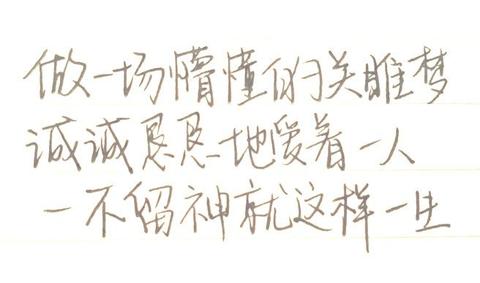 做一场懵懂的关雎梦
诚诚恳恳地爱着一人
一不留神就这样一生